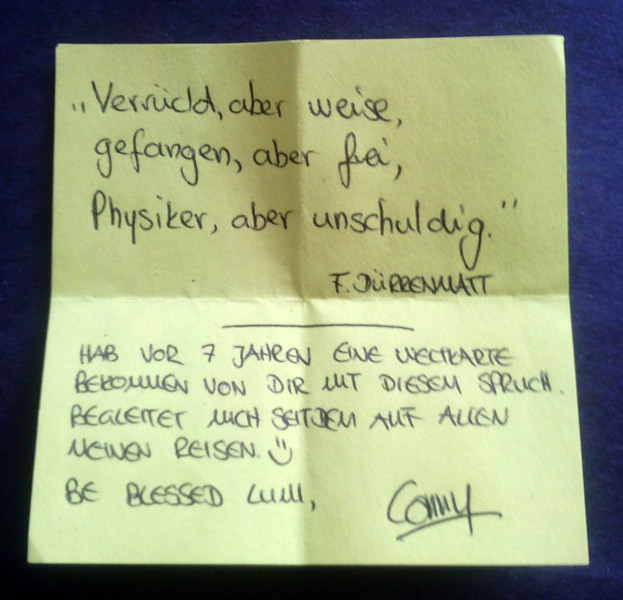 „Verrückt, aber weise,
gefangen, aber frei,
Physiker, aber unschuldig.“
F. DÜRRENMATT
HAB VOR 7 JAHREN EINE WELTKARTE
BEKOMMEN VON DIR MIT DIESEM SPRUCH.
BEGLEITET MICH SEITDEM AUF ALLEN
MEINEN REISEN. ☺
BE BLESSED
Conny